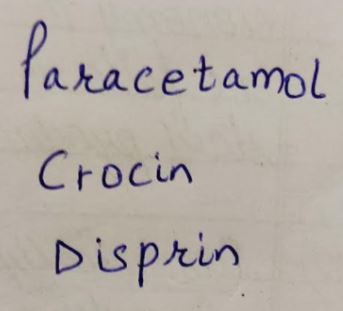 Paracetamol
Crocin
Disprin